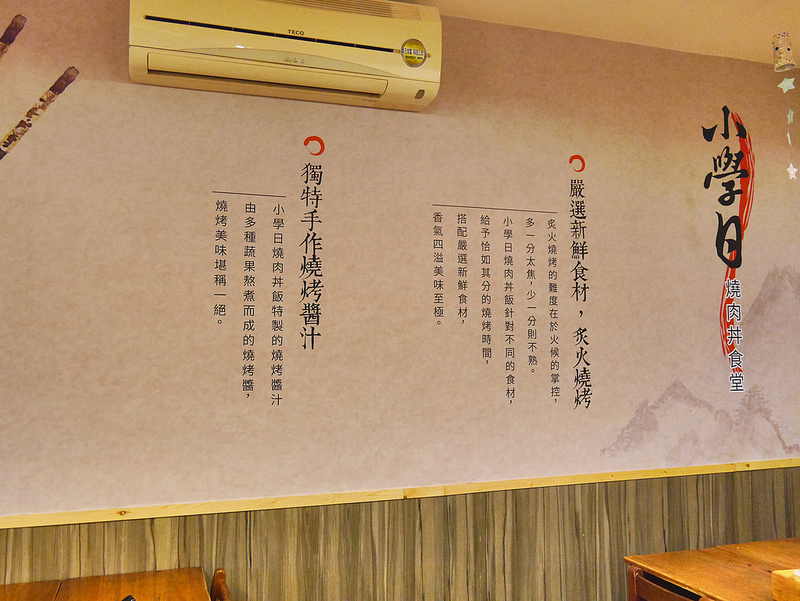 小學日
燒肉丼食堂
嚴選新鮮食材，炙火燒烤
炙火燒烤的難度在於火候的掌控，
多一分太焦，少一分則不熟。
小學日燒肉丼飯針對不同的食材，
給予恰如其分的燒烤時間，
搭配嚴選新鮮食材，
香氣四溢美味至極。
獨特手作燒烤醬汁
小學日燒肉丼飯特製的燒烤醬汁
由多種蔬果熬煮而成的燒烤醬，
燒烤美味堪稱一絕。
TECO